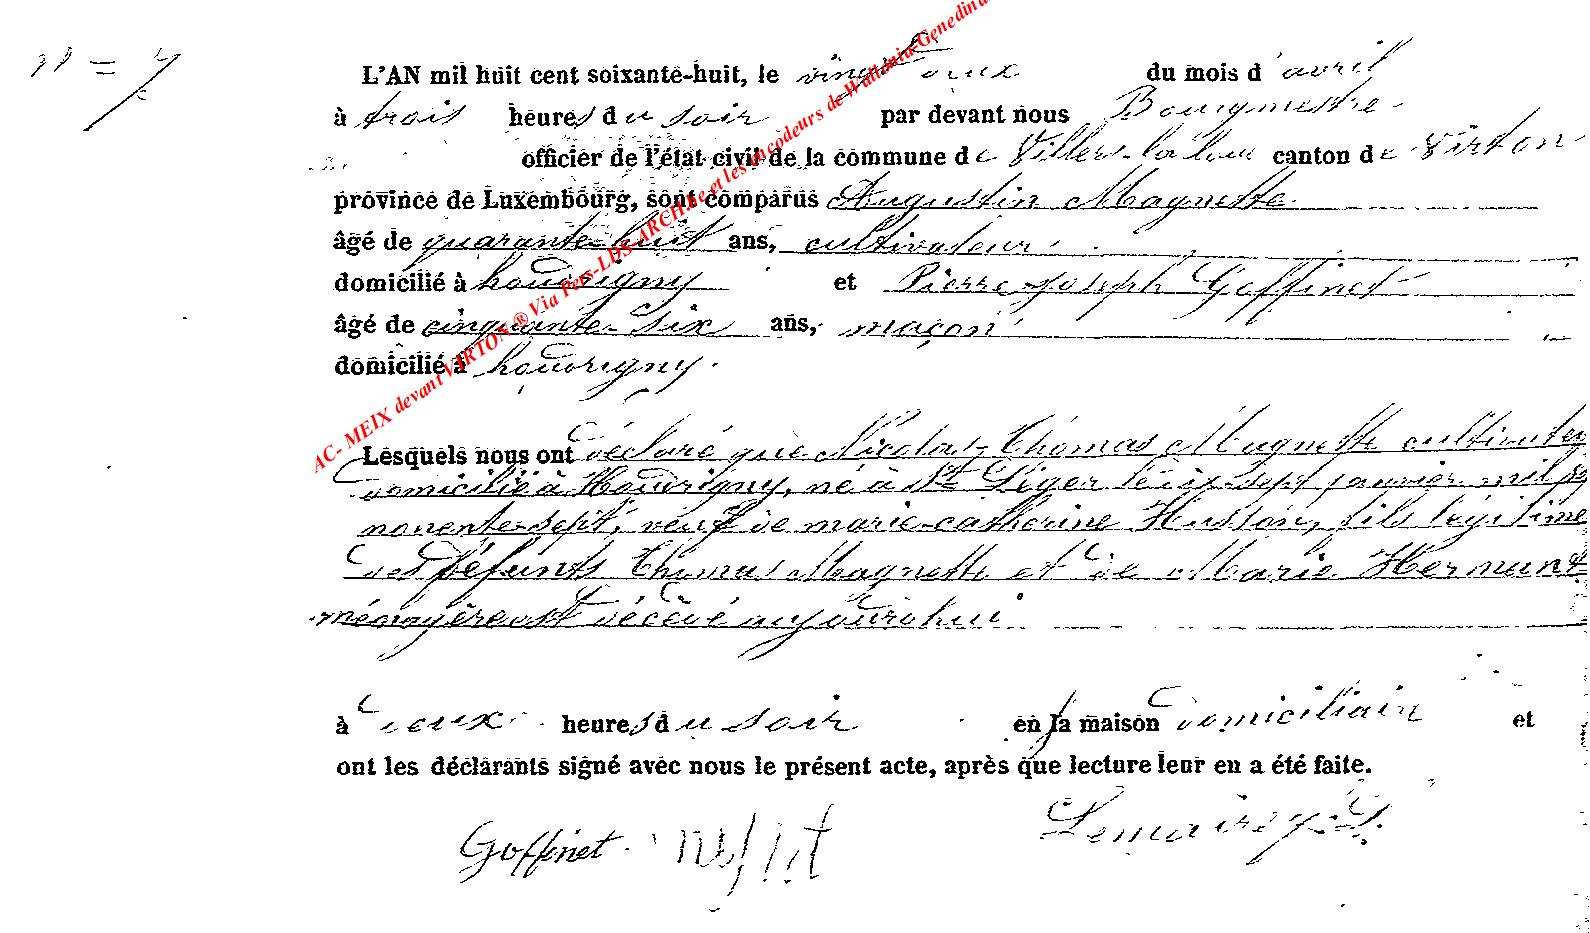 N = 7
L'AN mil huit cent soixante-huit, le vingt deux du mois d'avril
à trois heures du soir par devant nous Bourgmestre
officier de l'état civil de la commune de Villers-la-loue canton de Virton
province de Luxembourg, sont comparus Augustin Magnette
âgé de quarante-huit ans, cultivateur
domicilié à houdrigny et Pierre-Joseph Goffinet
âgé de cinquante-six ans, maçon
domicilié à houdrigny.
AC- MEIX devant VIRTON ® Via Pers-LDS-ARCH.be et les encodeurs de Wallonia-Genedind
Lesquels nous ont déclaré que Nicolas-Thomas Magnette cultivateur
domicilié à Houdrigny, né à St Léger le dix-sept janvier mil sept
nonente-sept, veuf de marie-catherine Husson, fils légitime
des défunts Thomas Magnette et de Marie
ménagère est décédé aujourdhui
à deux heures du soir en sa maison domiciliair et
ont les déclarants signé avec nous le présent acte, après que lecture leur en a été faite.
Goffinet Lemaire